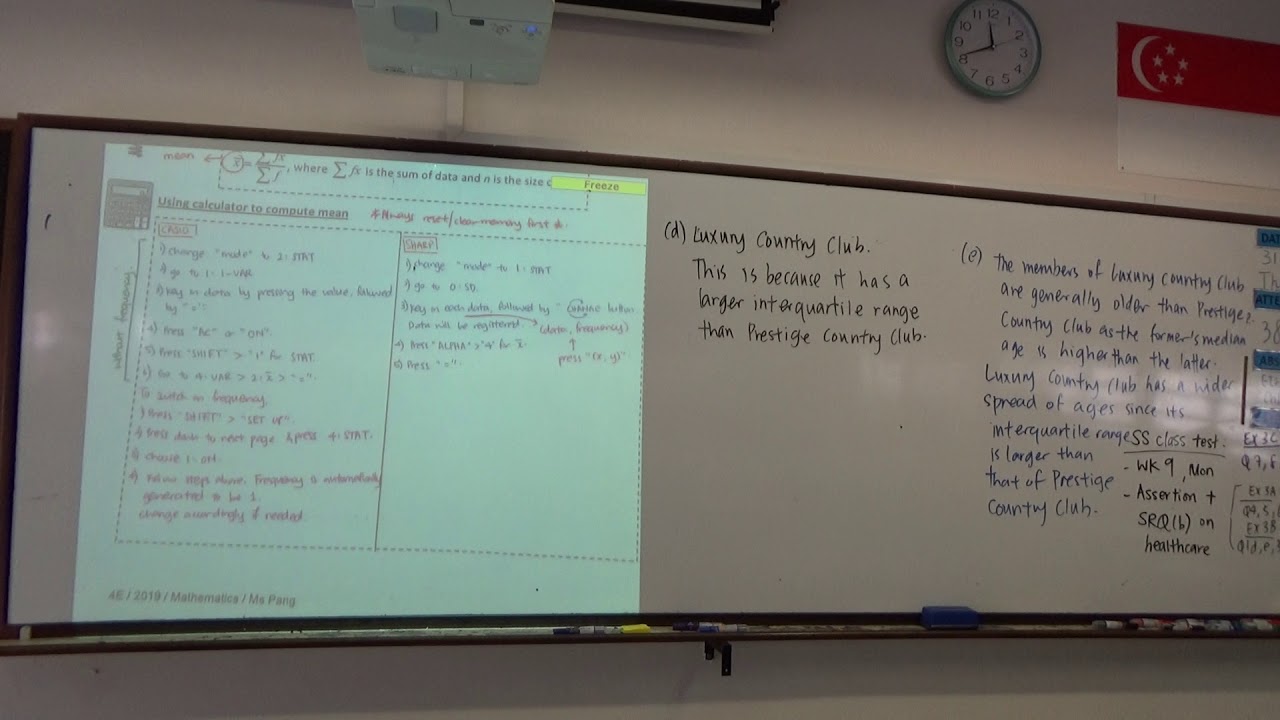 mean
x̄ = Σfx / Σf, where Σ fx is the sum of data and n is the size
Freeze
Using calculator to compute mean
* Always reset/clear memory first *
without frequency
CASIO
1) change "mode" to 2: STAT
2) go to 1: 1-VAR
3) key in data by pressing the value, followed
by "=".
4) Press "AC" or "ON".
5) Press "SHIFT" > "1" for STAT.
6) Go to 4: VAR > 2: x̄ > "=".
To switch on frequency,
1) Press "SHIFT" > "SET UP".
2) Press down to next page & press 4: STAT.
3) choose 1: ON.
4) Follow steps above. Frequency is automatically
generated to be 1.
change accordingly if needed.
SHARP
1) change "mode" to 1: STAT
2) go to 0: SD.
3) key in each data, followed by "  " button.
Data will be registered.
(data, frequency)
press "(x, y)".
4) Press "ALPHA" > "4" for x̄.
5) Press "=".
4E / 2019 / Mathematics / Ms Pang
(d) Luxury Country Club.
This is because it has a
larger interquartile range
than Prestige Country Club.
(e) the members of Luxury Country Club
are generally older than Prestige
Country Club as the former's median
age is higher than the latter.
Luxury Country Club has a wider
spread of ages since its
interquartile range
is larger than
that of Prestige
Country Club.
SS class test:
- WK 9, Mon
- Assertion +
SRQ(b) on
healthcare
DA
31
Th
ATTE
30
ABS
Ex 3C
Q 7, 8
Ex 3A
Ex 3B
Q1d, e,
12
1
2
3
4
5
6
7
8
9
10
11